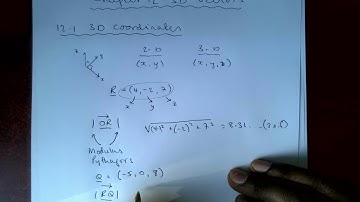 Chapter 12 3D Vectors
12.1 3D coordinates
z y
x
2.D 3.D
(x, y) (x, y, z)
R = (4, -2, 7)
x y z
|OR| √(4)² + (-2)² + 7² = 8.31...
Modulus
Pythagors
Q = (-5, 0, 8)
|RQ|